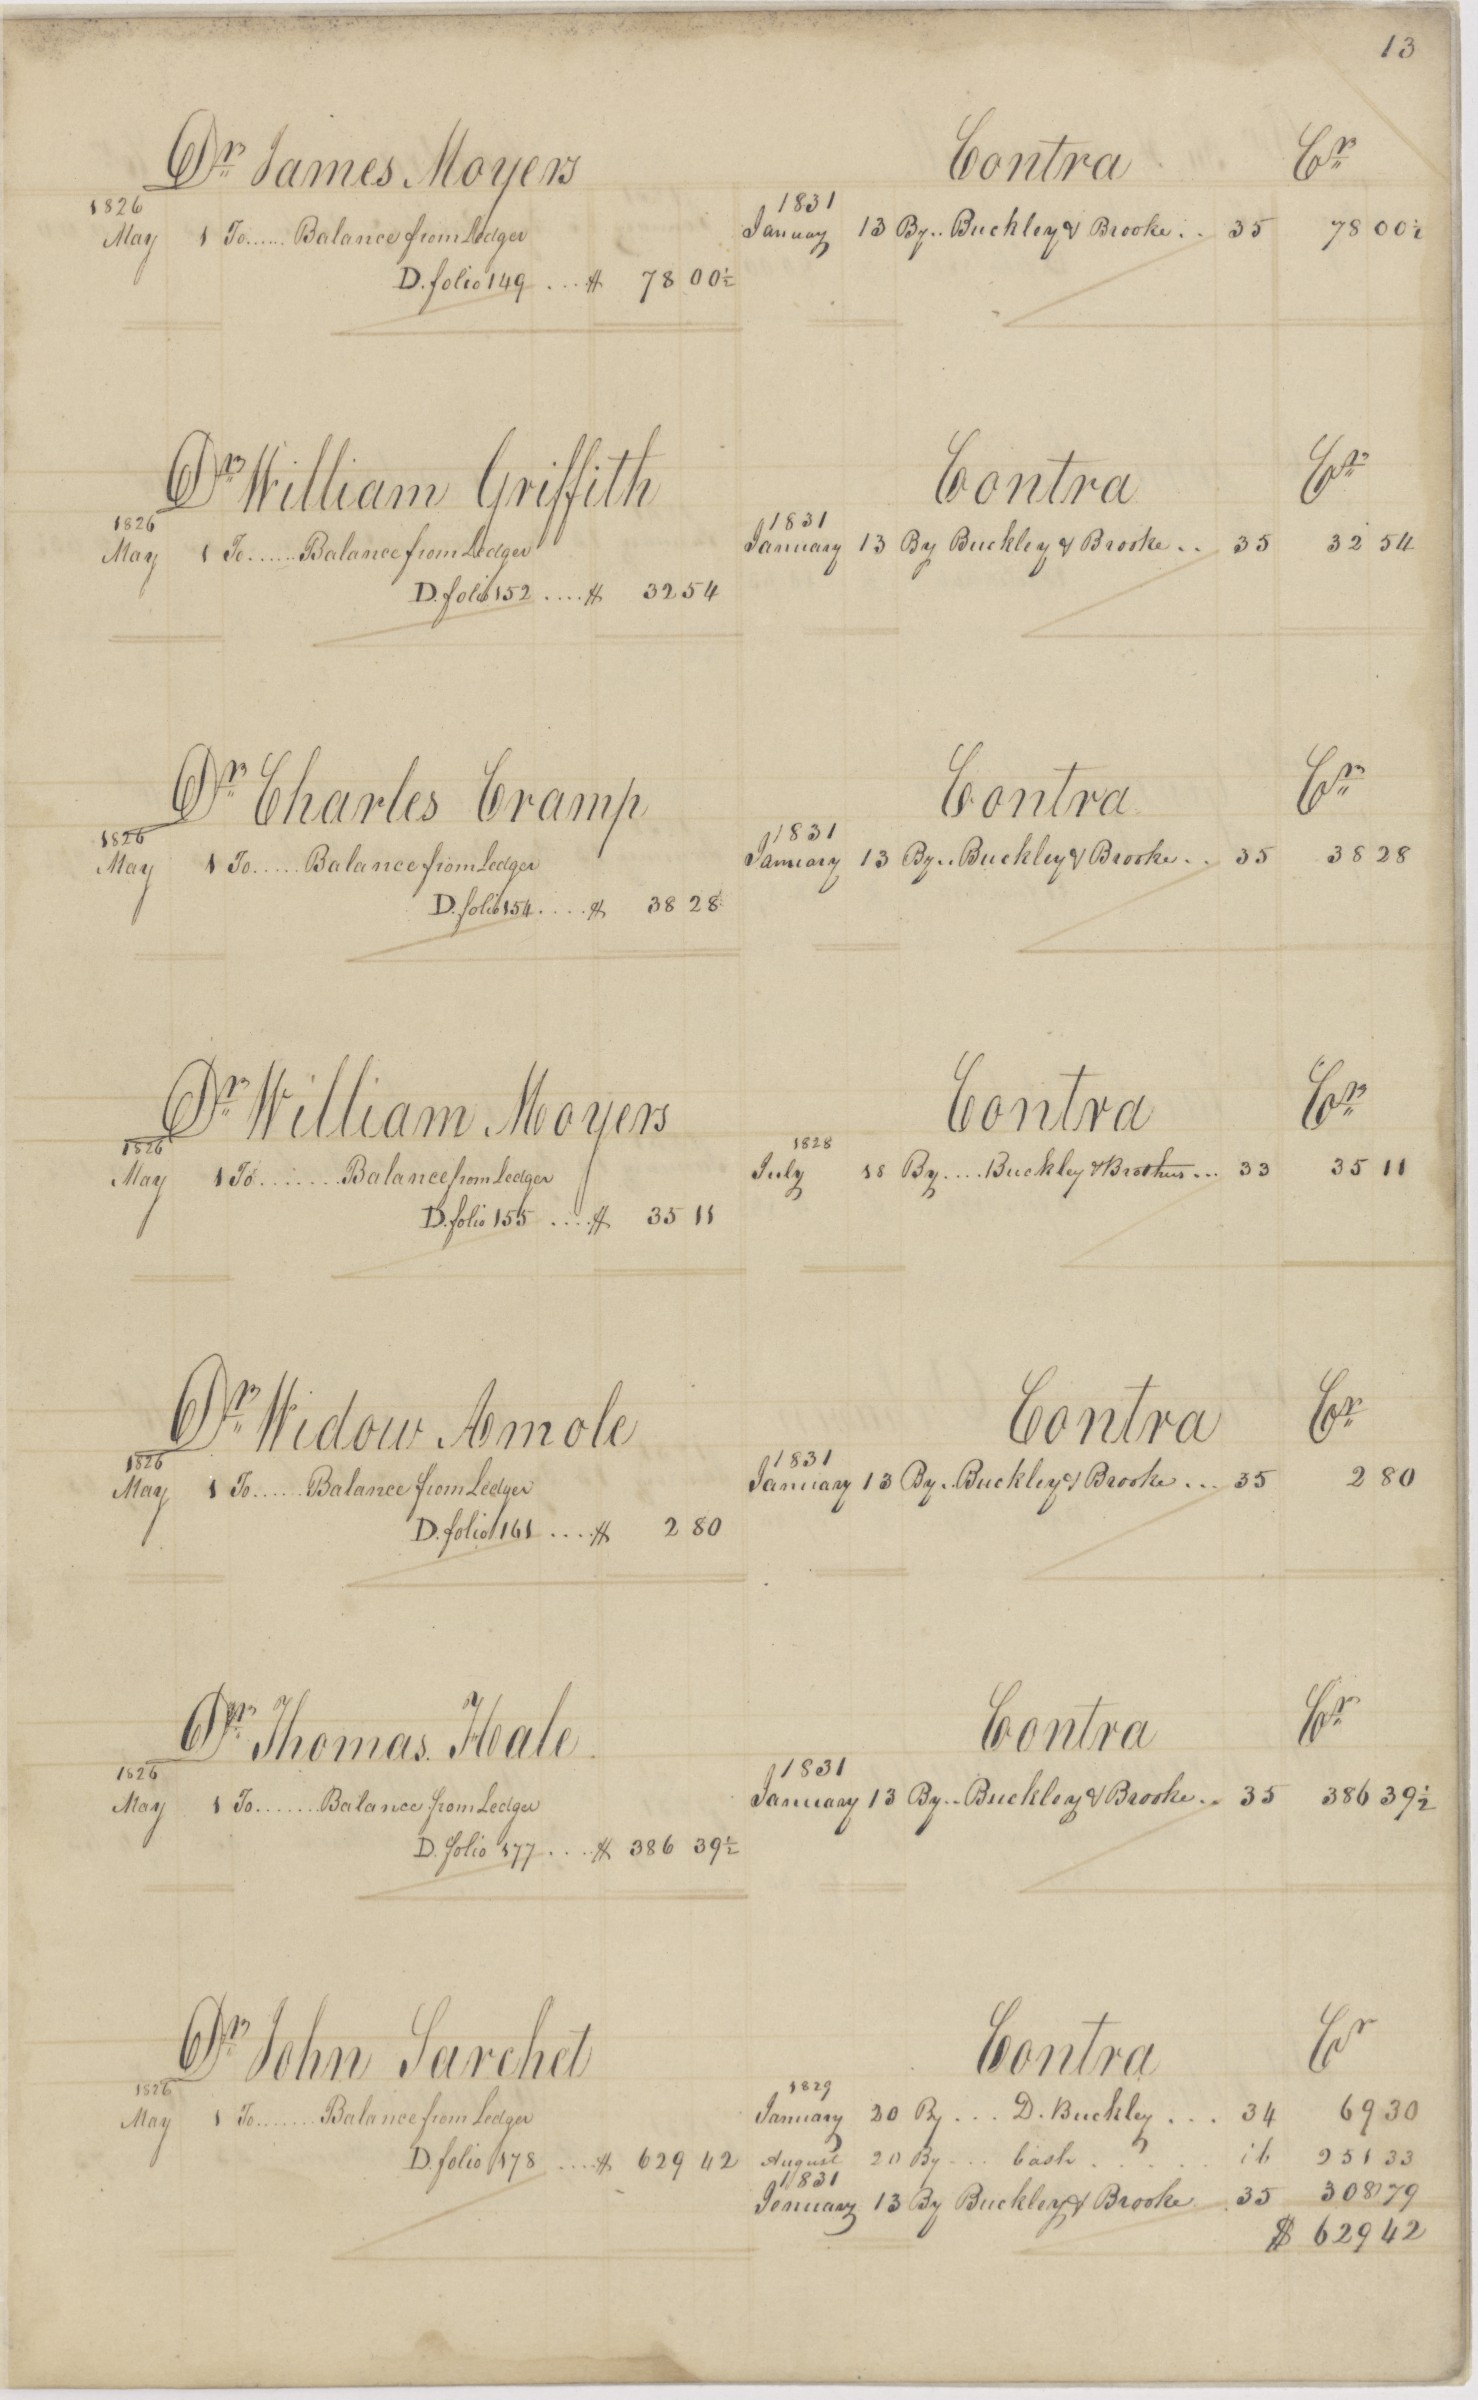 13
Dr James Moyers Contra Cr
1826 1831
May 1 To...... Balance from Ledger January 13 By.. Buckley & Brooke... 35 78 00½
D. folio 149 ....$ 78 00½
Dr William Griffith Contra Cr
1826 1831
May 1 To...... Balance from Ledger January 13 By Buckley & Brooke.. 35 32 54
D. folio 152 ....$ 32 54
Dr Charles Cramp Contra Cr
1826 1831
May 1 To..... Balance from Ledger January 13 By.. Buckley & Brooke.. 35 38 28
D. folio 154 ....$ 38 28
Dr William Moyers Contra Cr
1826 1828
May 1 To....... Balance from Ledger July 18 By.... Buckley & Brothers... 33 35 11
D. folio 155 ....$ 35 11
Dr Widow Amole Contra Cr
1826 1831
May 1 To...... Balance from Ledger January 13 By.. Buckley & Brooke... 35 2 80
D. folio 161 ....$ 2 80
Dr Thomas Hale Contra Cr
1826 1831
May 1 To....... Balance from Ledger January 13 By.. Buckley & Brooke.. 35 386 39½
D. folio 177 ....$ 386 39½
Dr John Sarchet Contra Cr
1826 1829
May 1 To....... Balance from Ledger January 20 By... D. Buckley... 34 69 30
D. folio 178 ....$ 629 42 August 20 By... Cash...... ib 251 33
1831
January 13 By Buckley & Brooke 35 308 79
$ 629 42